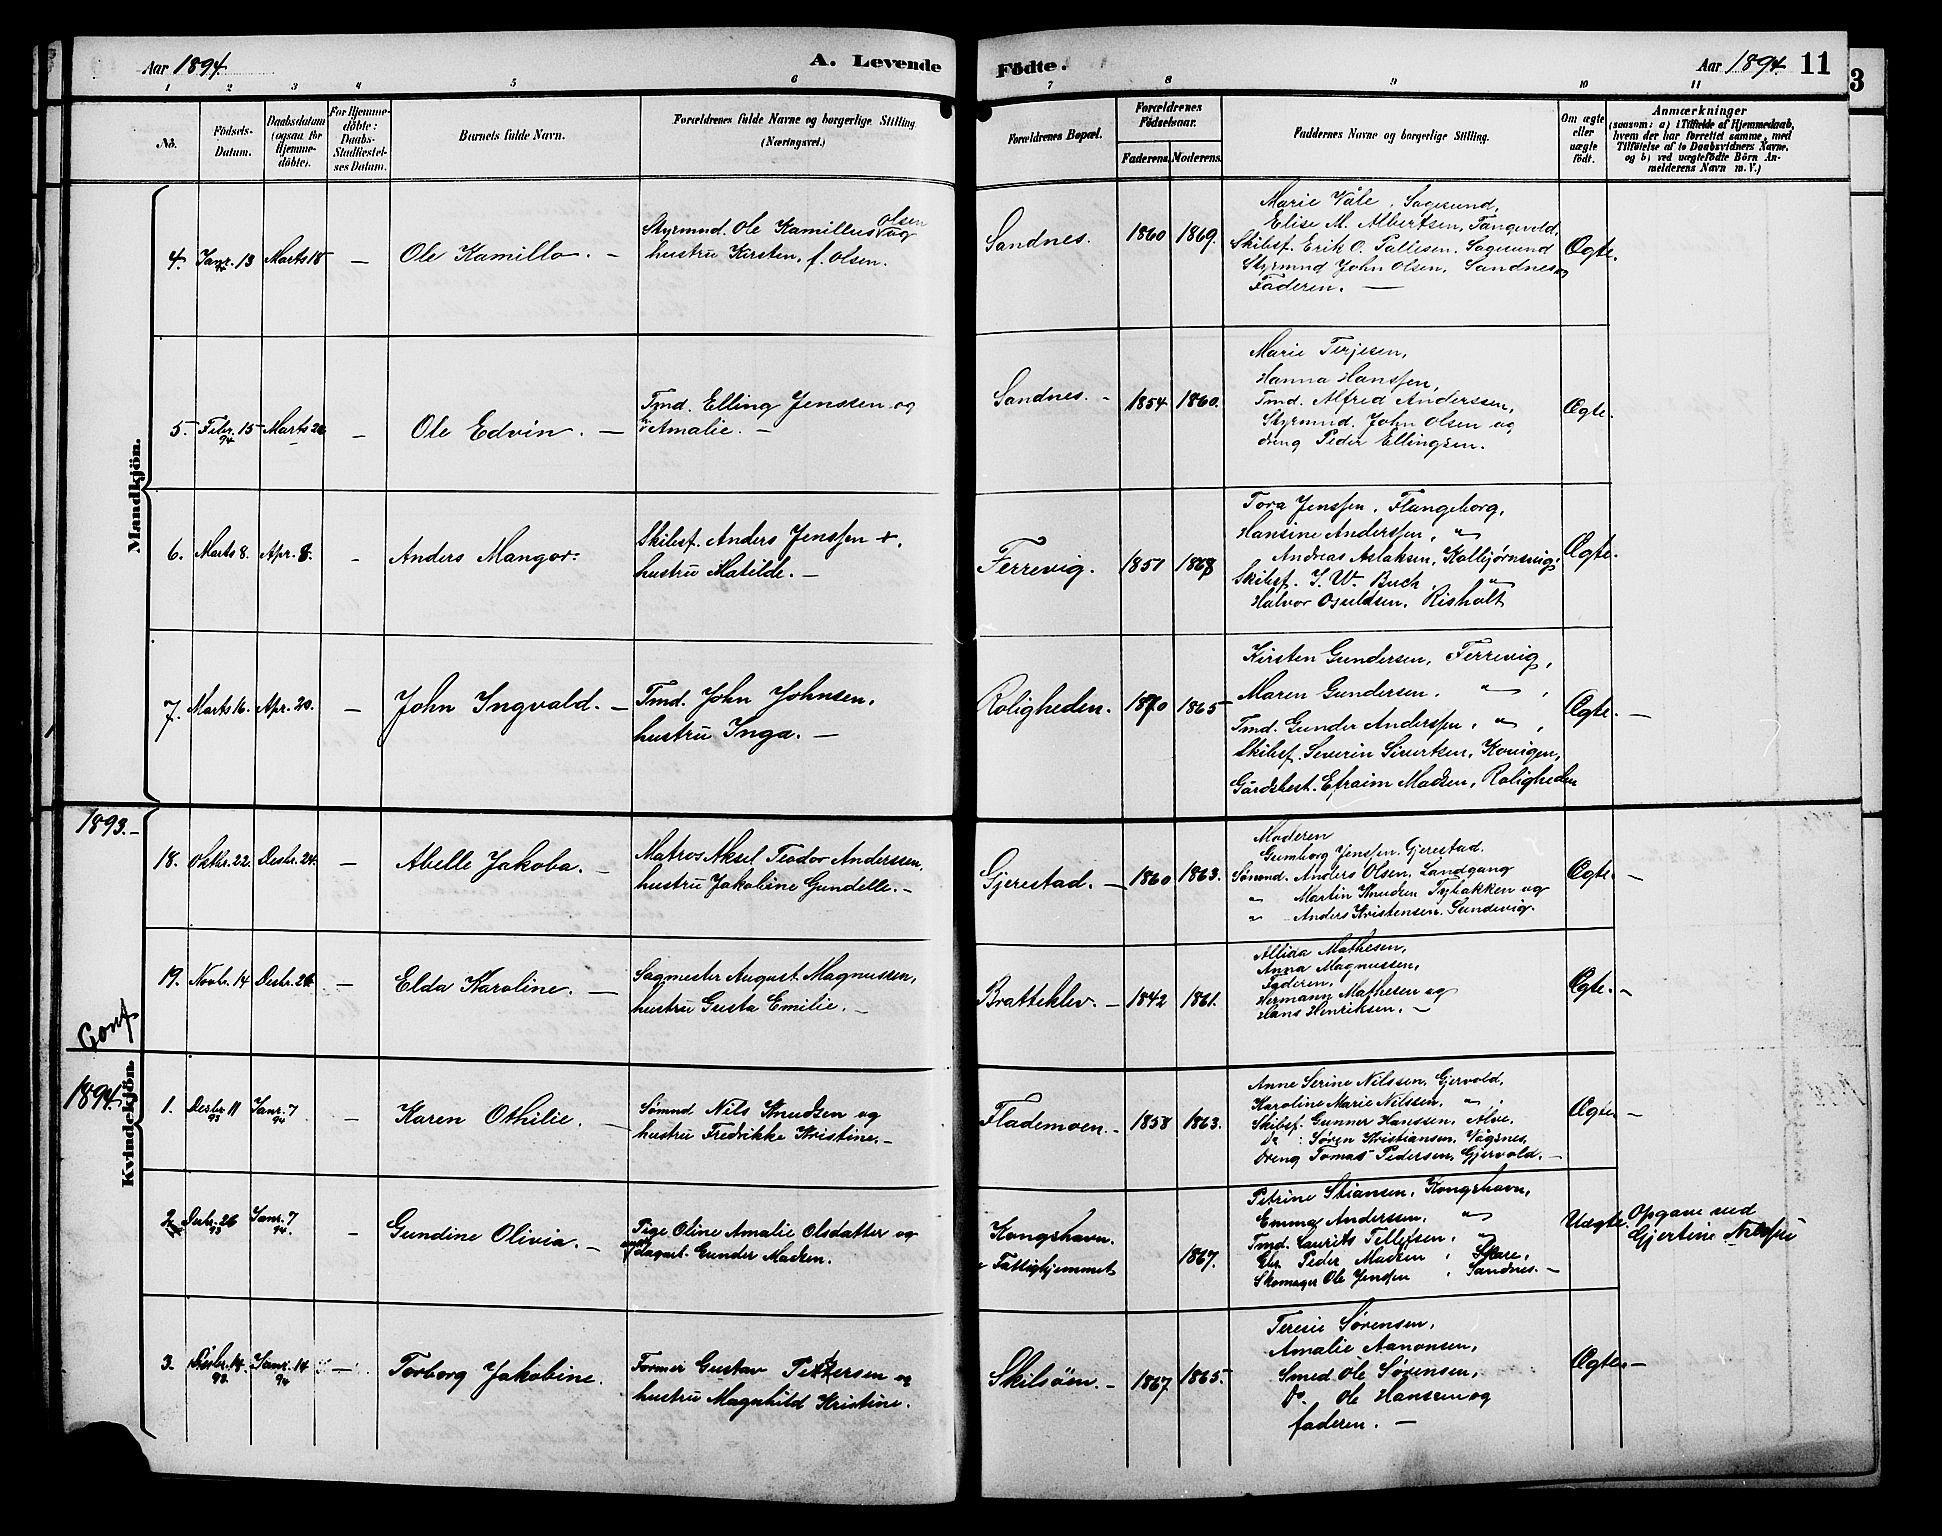 Aar 1894. A. Levende Födte. Aar 1894. 11
3
1 2 3 4 5 6 7 8 9 10 11
No.
Födsels-
Datum.
Daabsdatum
(ogsaa for
Hjemme-
döbte).
For Hjemme-
döbte:
Daabs-
Stadfæstel-
ses Datum.
Barnets fulde Navn.
Forældrenes fulde Navne og borgerlige Stilling
(Næringsvei.)
Forældrenes Bopæl.
Forældrenes
Födselsaar.
Faderens. Moderens.
Faddernes Navne og borgerlige Stilling.
Om ægte
eller
uægte
födt.
Anmærkninger
(saasom: a) i Tilfælde af Hjemmedaab,
hvem der har forrettet samme, med
Tilföielse af to Daabsvidners Navne,
og b) ved uægtefödte Börn An-
melderens Navn m. V.)
Mandkjön.
4. Janr. 13 94 Marts 18 — Ole Kamillo. —
Styrmnd. Ole Kamillus Olsen og
hustru Kirsten, f. Olsen.
Sandnes. 1860 1869.
Marie Våle, Sagesund,
Elise M. Albertsen, Tangvold,
Skibsf. Erik O. Pallesen, Sagesund
Styrmnd John Olsen, Sandnes og
Faderen. —
Ægte.
5. Febr. 15 94 Marts 26 — Ole Edvin. —
Tmd. Elling Jenssen og
Amalie. —
Sandnes. - 1854 1860.
Marie Terjesen,
Hanna Hanssen,
Tmd. Alfred Anderssen,
Styrmnd. John Olsen og
dreng Peder Ellingsen.
Ægte.
6. Marts 8. Apr. 8. — Anders Mangor.
Skibsf. Anders Jenssen +.
hustru Matilde. —
Ferrevig. 1851 1868
Tora Jenssen, Flangeborg,
Hansine Anderssen, "
Andreas Aslaksen, Kolbjørnsvig,
Skibsf. J. W. Buch, "
Halvor Osuldsen, Risholt
Ægte.
7. Marts 16. Apr. 20. — John Ingvald. —
Tmd. John Johnsen,
hustru Inga. —
Roligheden. 1870 1865
Kirsten Gundersen, Ferrevig,
Maren Gundersen, " ,
Tmd. Gunder Anderssen, " ,
Skibsf. Severin Sivertsen, Konigen,
Gårdsbest. Efraim Madsen, Roligheden
Ægte. —
1893. —
18. Oktbr. 22. Desbr. 24. — Abelle Jakoba. —
Matros Aksel Teodor Anderssen,
hustru Jakobine Gundelle. —
Gjerestad. — 1860 1863.
Moderen
Gumborg Jenssen, Gjerestad.
Sømnd. Anders Olsen, Landgang
" Martin Knudsen Tybakken og
" Anders Kristensen, Sundevig.
Ægte. —
19. Novbr. 14 Desbr. 26 — Elda Karoline. —
Sagmester August Magnussen,
hustru Gusta Emilie. —
Bratteklev. — 1842 1861.
Allida Mathesen,
Anna Magnussen,
Faderen,
Hermann Mathesen og
Hans Henriksen. —
Ægte. —
Conf
1894.
Kvindekjön.
1. Desbr 11 93 Janr. 7 94 — Karen Othilie. —
Sømnd Nils Knudsen og
hustru Fredrikke Kristine. —
Flademoen. — 1858 1863.
Anne Serine Nilssen, Gjervold,
Karoline Marie Nilssen, " .
Skibsf. Gunner Hanssen, Alve,
Do : Søren Kristiansen, Vågsnes,
Dreng Tomas Pedersen, Gjervold. —
Ægte. —
2. Desbr. 26 93 Janr. 7 94. — Gundine Olivia. —
Pige Oline Amalie Olsdatter og
dagarb. Gunder Madsen.
Kongshavn.
Fattighjemmet
1867.
Petrine Stiansen, Kongshavn,
Emma Anderssen, "
Tmd. Laurits Tellefsen, "
Peder Madsen , Skare,
Skomager Ole Jenssen , Sandnes. —
Uægte.
Opgave ved
Gjertine
3. Desbr. 14. 93 Janr. 14 94 — Torborg Jakobine.
Former Gustav Pettersen og
hustru Magnhild Kristine.
Skilsöen. — 1867 1865.
Teresie Sørensen,
Amalie Aanonsen,
Smed Ole Sørensen,
Do. Ole Hanssen og
faderen. —
Ægte. —